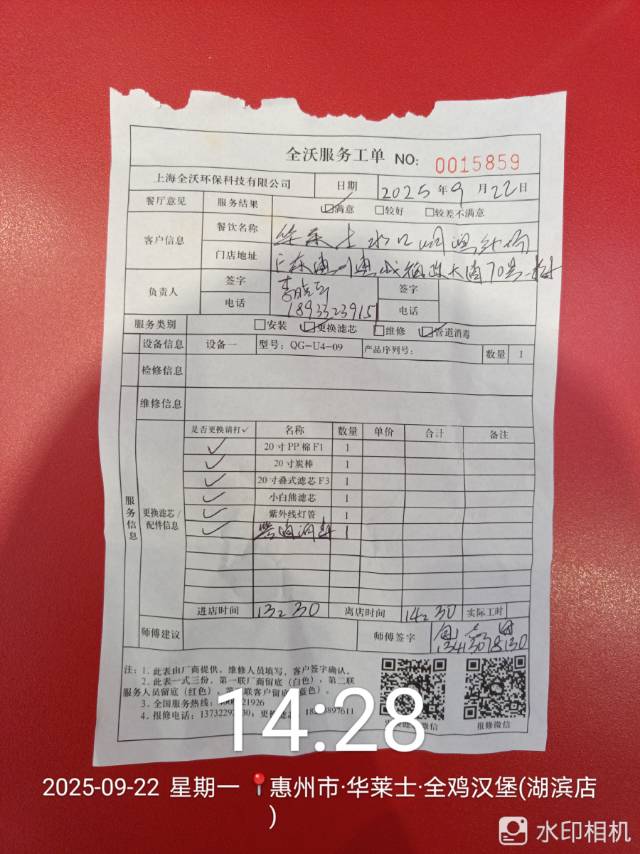 全沃服务工单 NO: 0015859
上海全沃环保科技有限公司 日期 2025年9月22日
餐厅意见 服务结果 ☑满意 □较好 □较差不满意
客户信息 餐饮名称 华莱士
门店地址
负责人 签字 签字
电话 18933323915 电话
服务类别 □安装 ☑更换滤芯 □维修 ☑管道消毒
设备信息 设备一 型号: QG-U4-09 产品序列号: 数量 1
检修信息
维修信息
服务信息
更换滤芯/配件信息
是否更换请打✓ 名称 数量 单价 合计 备注
✓ 20寸PP棉F1 1
✓ 20寸炭棒 1
✓ 20寸叠式滤芯F3 1
✓ 小白熊滤芯 1
✓ 紫外线灯管 1
✓ 1
进店时间 13:30 离店时间 14:30 实际工时
师傅建议 师傅签字
13413078130
注: 1. 此表由厂商提供, 维修人员填写, 客户签字确认。
2. 此表一式三份, 第一联厂商留底(白色), 第二联
服务人员留底(红色), 联客户留底(蓝色)。
3. 全国服务热线: 1926
4. 报修电话: 13732292 0, 更换滤芯 897611
报修微信
14:28
2025-09-22 星期一 📍惠州市·华莱士·全鸡汉堡(湖滨店
)
水印相机